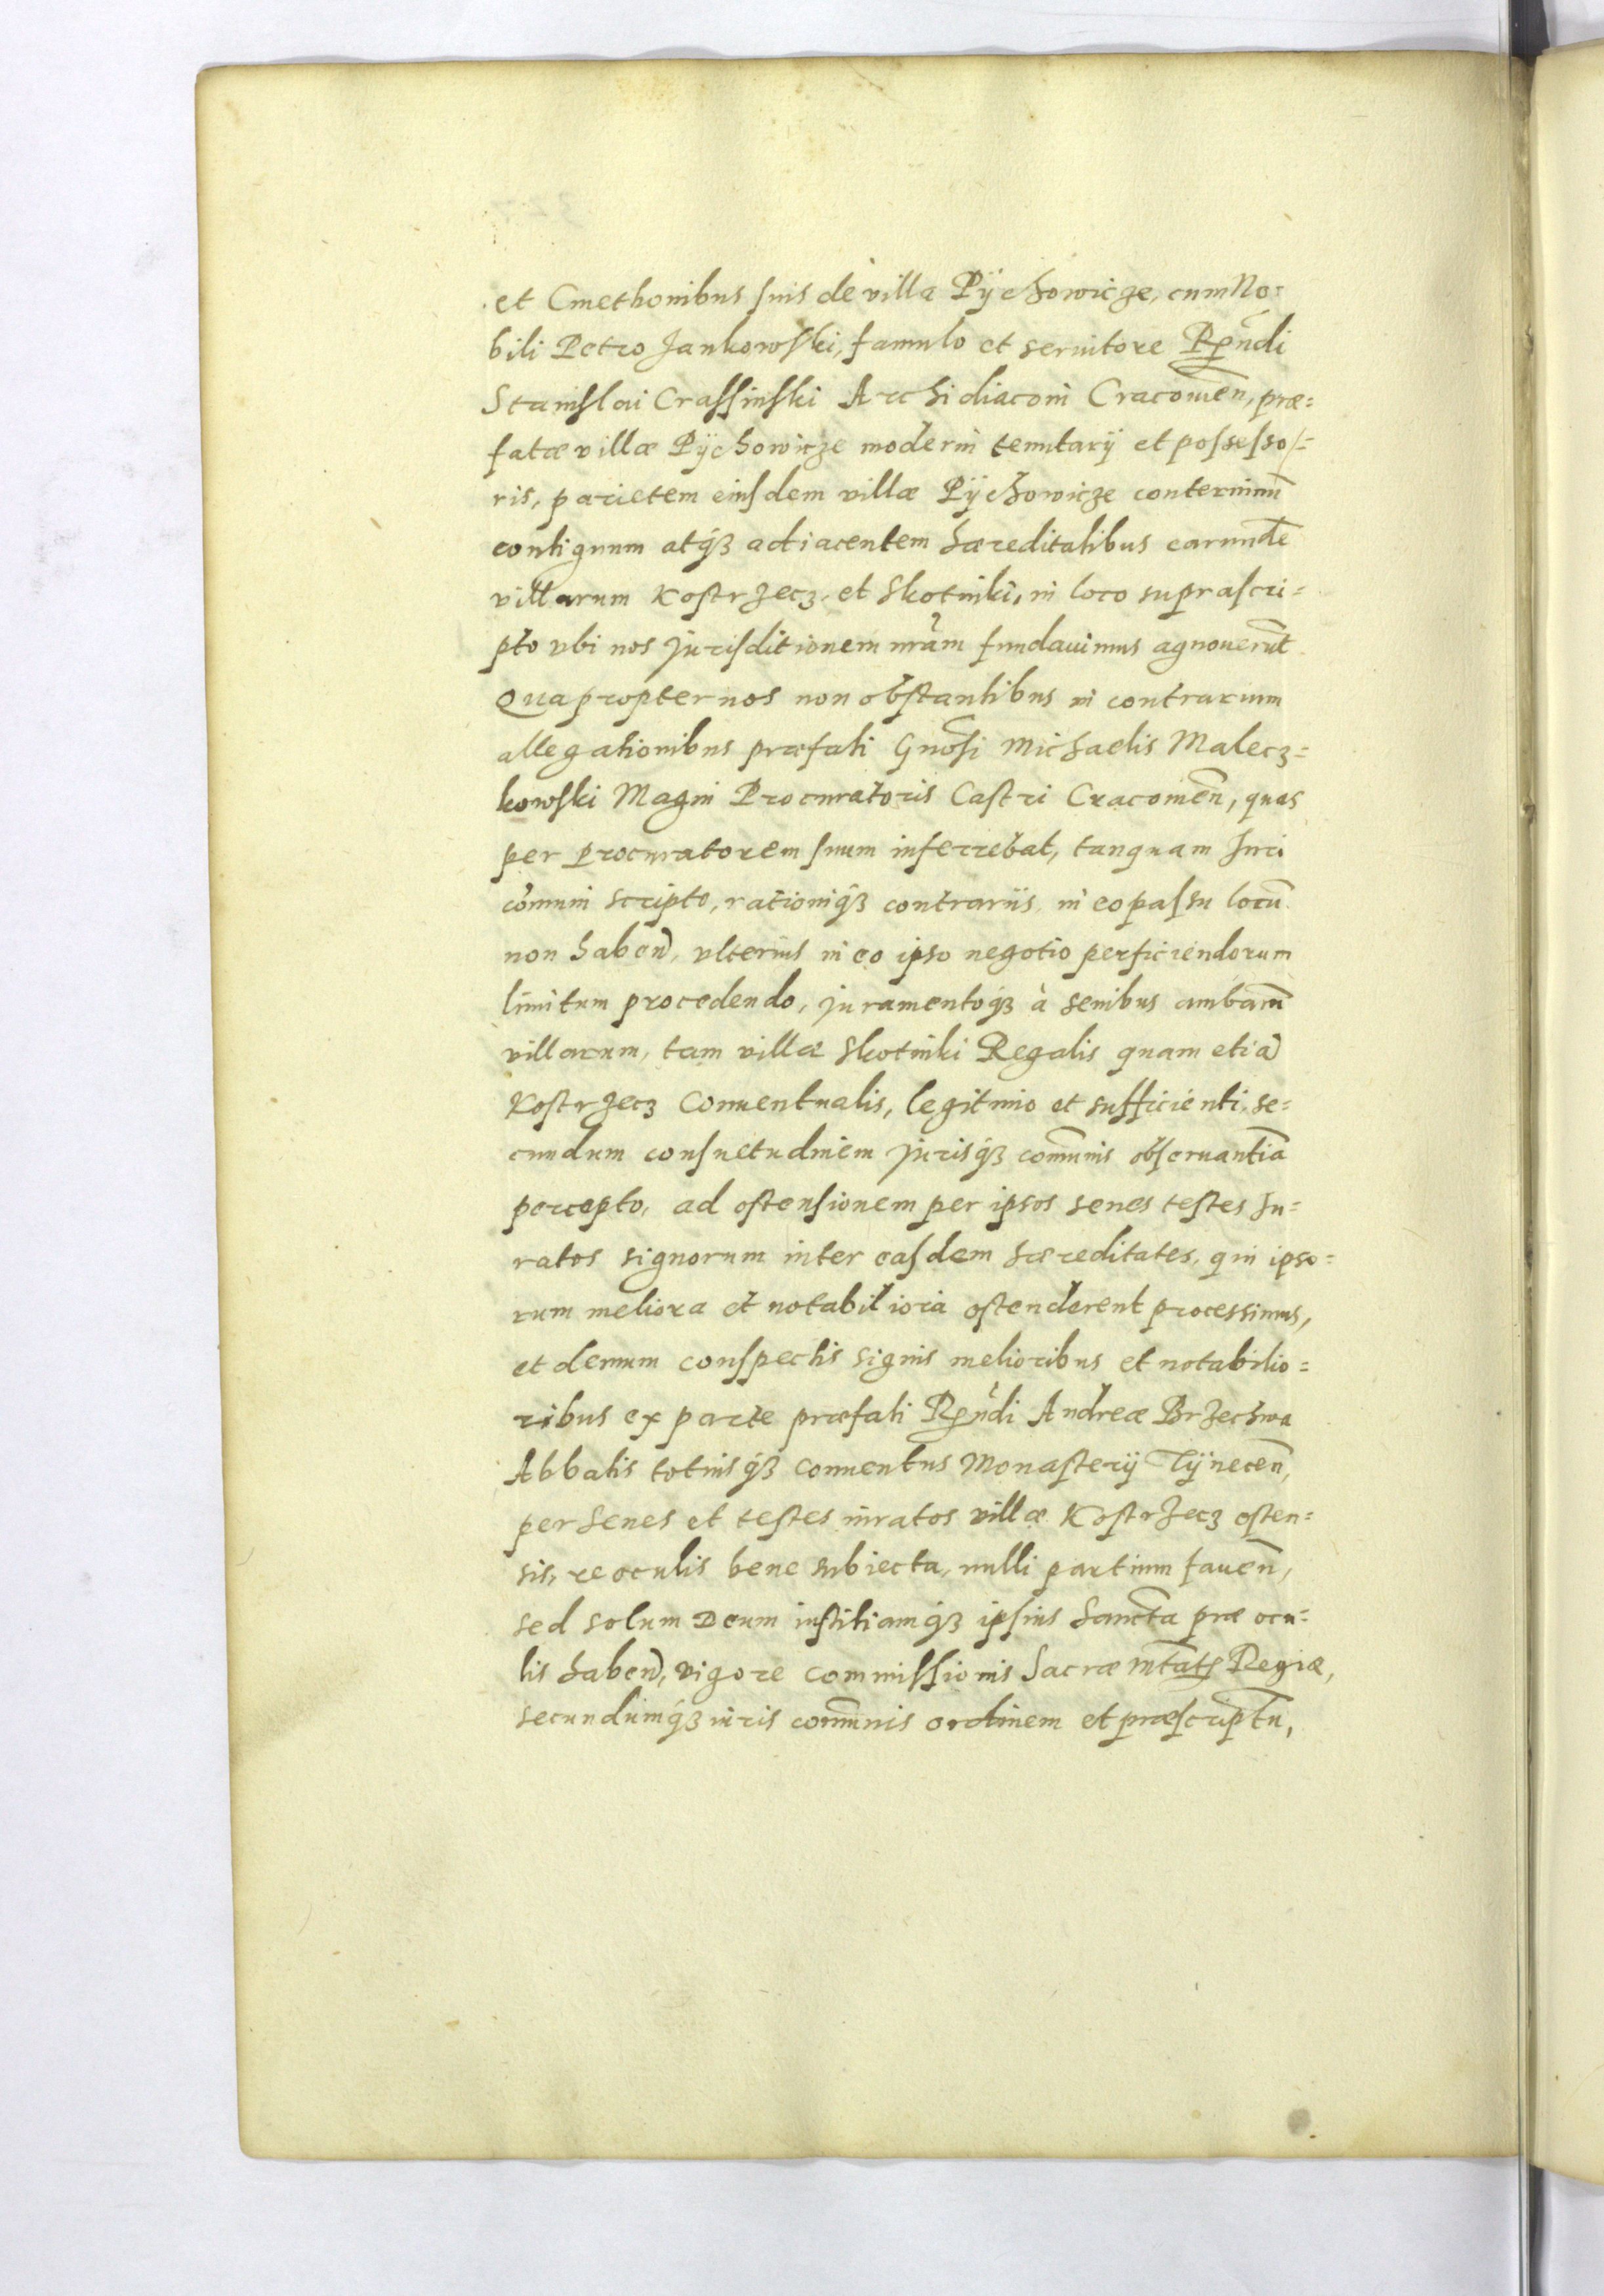 et Cmethonibus suis de villa Pÿchowicze, cum No=
bili Petro Jankowski, famulo et seruitore Rṇdi
Stanislai Crassinski Archidiaconi Cracouień, præ=
fatæ villæ Pÿchowicze moderni tenutarÿ et possesso=
ris, parietem eiusdem villæ Pÿchowicze conterminū
contiguum atqȝ adiacentem hæreditatibus earundē
villarum Kostrzecz et Skotniki, in loco suprascri=
pto vbi nos jurisditionem nr̃am fundauimus agnouerūt
Quapropter nos non obstantibus in contrarium
allegationibus præfati Gnōsi Michaelis Malecz=
kowski Magni Procuratoris Castri Cracouień, quas
per procuratorem suum inferrebat, tanquam Juri
cōmuni scripto, rationiqȝ contrariis, in eo passu locū
non haben̄, vlterius in eo ipso negotio perficiendorum
limitum procedendo, juramentoqȝ à senibus ambarū
villarum, tam villæ Skotniki Regalis quam etiā
Kostrzecz Conuentualis, legitimo et sufficienti, se=
cundum consuetudinem jurisqȝ com̄unis obseruantiā
percepto, ad ostensionem per ipsos senes testes Ju=
ratos signorum inter easdem hæreditates, qui ipso=
rum meliora et notabiliora ostenderent processimus,
et demum conspectis signis melioribus et notabilio=
ribus ex parte præfati Rṇdi Andreæ Brzechwa
Abbatis totiusqȝ conuentus Monasterÿ Tÿnecen̄,
per senes et testes iuratos villæ Kostrzecz osten=
sis, re oculis bene subiecta, nulli partium fauen̄,
sed solum Deum iustitiamqȝ ipsius sanctā præ ocu=
lis haben̄, vigore commissionis Sacræ Mtat̄ȩ Regiæ,
secundumqȝ iuris com̄unis ordinem et præscriptū,